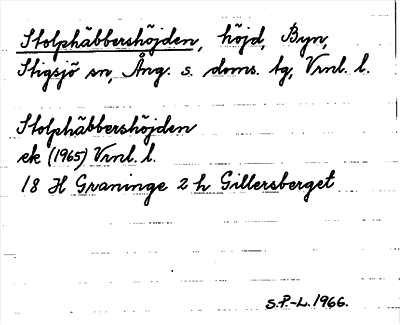 Stolphäbbershöjden, höjd, Byn,
Stigsjö sn, Ång. s. doms. tg, Vrnl. l.
Stolphäbbershöjden
ek (1965) Vrnl. l.
18 H Graninge 2 h Gillersberget
S.P.-L. 1966.